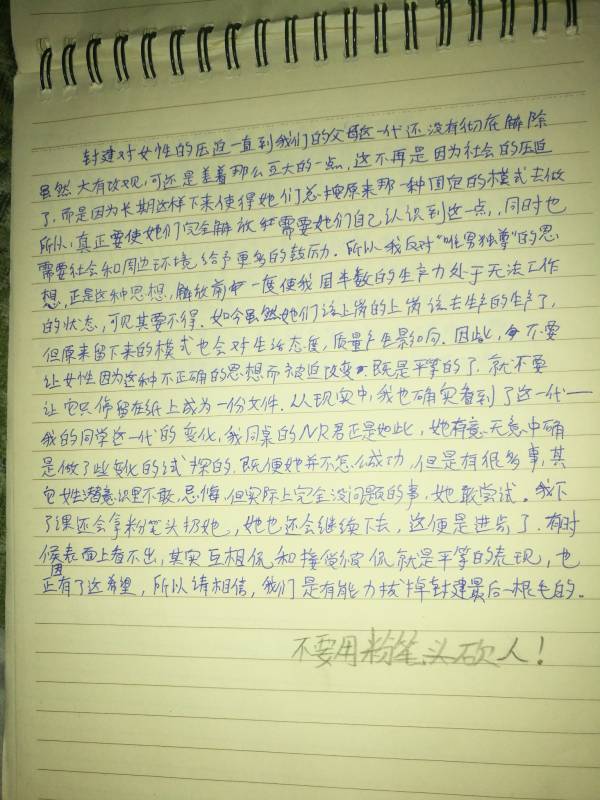 封建对女性的压迫一直到我们的父母这一代还没有彻底解除
虽然大有改观,可还是差着那么豆大的一点,这不再是因为社会的压迫
了,而是因为长期这样下来使得她们总按原来那一种固定的模式去做
所以,真正要使她们完全解放就需要她们自己认识到这一点,同时也
需要社会和周边环境给予更多的鼓励。所以我反对“唯男独尊”的思
想,正是这种思想,解放前一度使我国半数的生产力处于无法工作
的状态,可见其要不得.如今虽然她们该上岗的上岗该去生产的生产了,
但原来留下来的模式也会对生活态度,质量产生影响.因此,不要
让女性因为这种不正确的思想而被迫改变.既是平等的了,就不要
让它只停留在纸上成为一份文件.从现实中,我也确实看到了这一代——
我的同学这一代的变化,我同桌的NR君正是如此,她有意无意中确
是做了些变化的试探的.既便她并不怎么成功,但是有很多事,其
它女性潜意识里不敢,忌悔,但实际上完全没问题的事,她敢尝试。我下
了课还会拿粉笔头扔她,她也还会继续下去,这便是进步了.有时
侯表面上看不出,其实互相侃和接受彼侃就是平等的表现,也
正因有了这希望,所以请相信,我们是有能力拔掉封建最后一根毛的。
不要用粉笔头砍人!